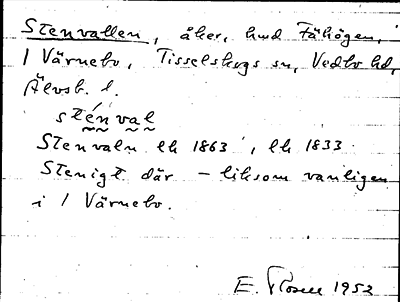 Stenvallen, åker, hmd Fähögen,
1 Värnebo, Tisselskogs sn, Vedbo hd,
Älvsb. l.
sténval
Stenvaln lh 1863, lh 1833.
Stenigt där – liksom vanligen
i 1 Värnebo.
E. Rosell 1952